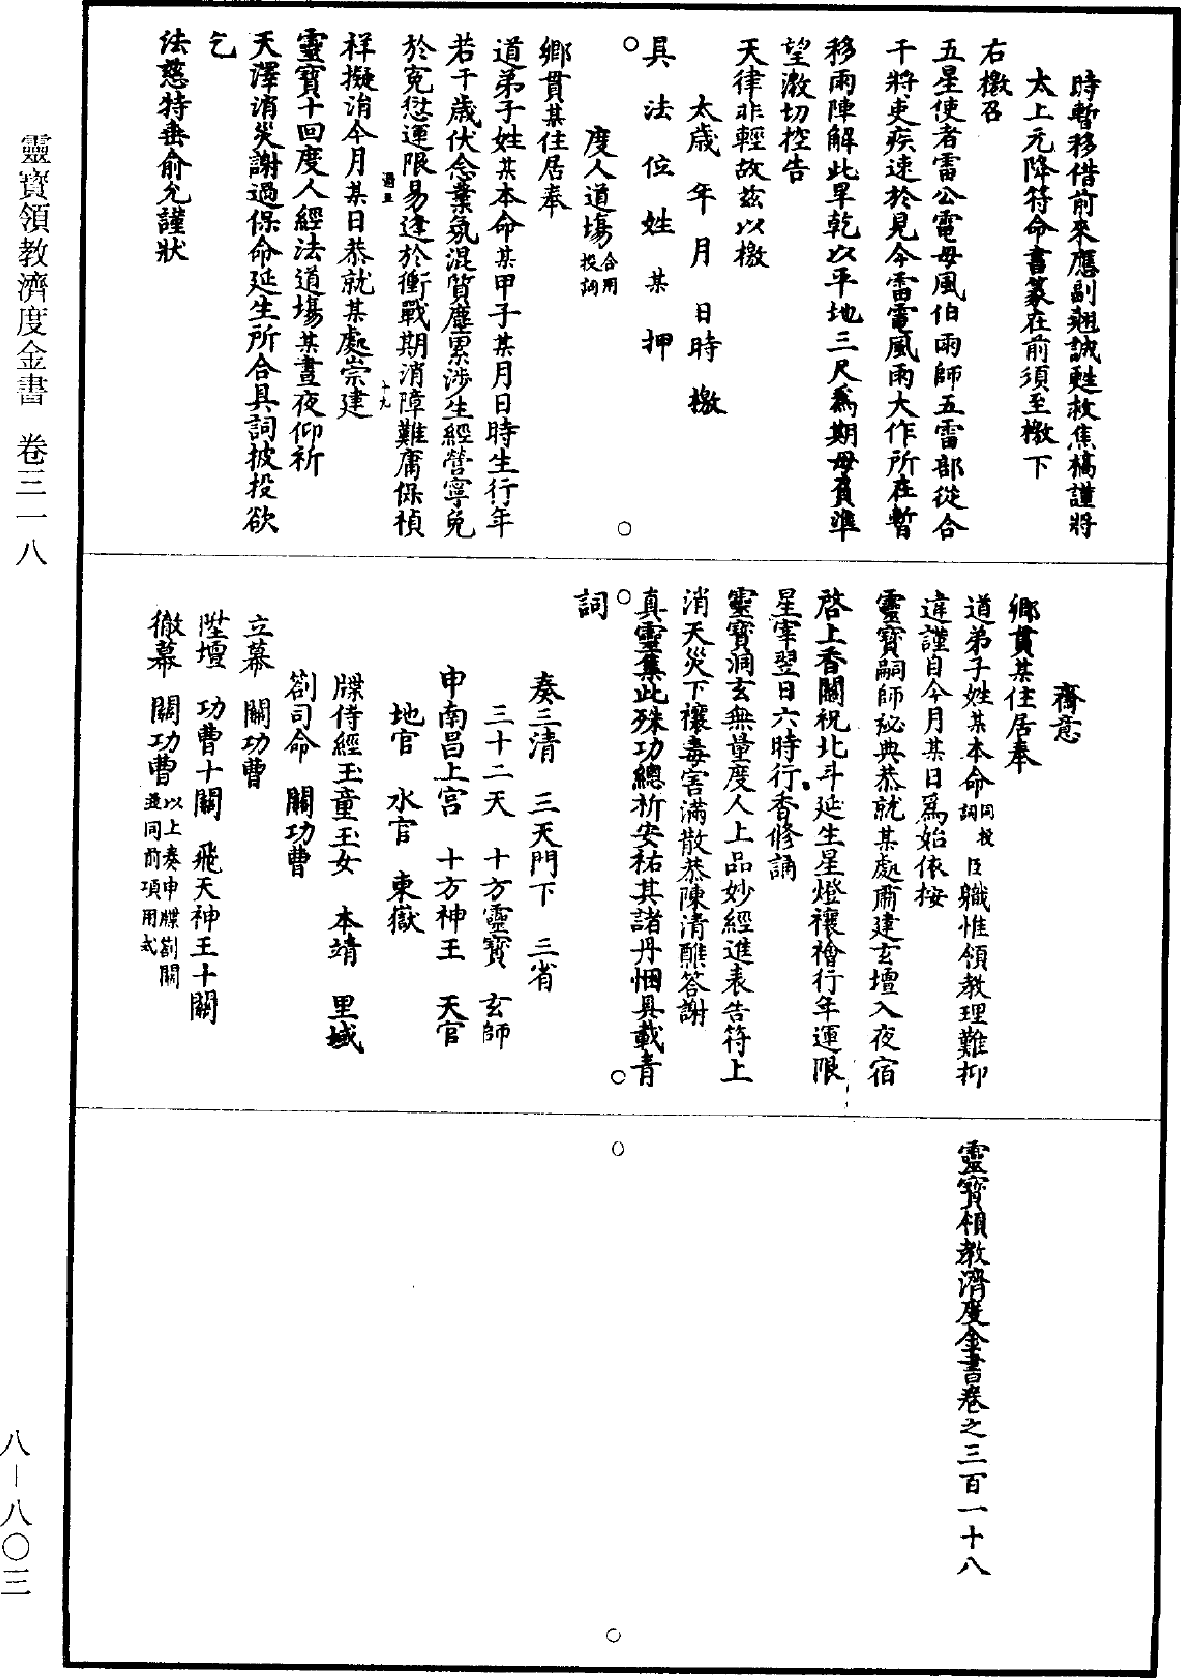 時暫移借前來應副趄誠甦救焦槁謹將
太上元降符命書篆在前須至檄下
右檄召
五星使者雷公電母風伯雨師五雷部從合
干將吏疾速於見今雷電風雨大作所在暫
移雨陣解此旱乾以平地三尺為期毋負準
望激切控告
天律非輕故茲以檄
太歲年月日時檄
具法位姓某押
度人道場合用投詞
鄉貫某住居奉
道弟子姓某本命某甲子某月日時生行年
若干歲伏念業氛混質塵累涉生經營寧免
於寃愆運限易逢於衝戰期消障難庸保禎
祥擬消今月某日恭就某處崇建
靈寶十回度人經法道場某晝夜仰祈
天澤消災謝過保命延生所合具詞披投欲
乞
法慈特垂俞允謹狀
齋意
鄉貫某住居奉
道弟子姓某本命同投詞臣職惟領教理難抑
違謹自今月某日為始依按
靈寶嗣師秘典恭就某處肅建玄壇入夜宿
啓上香關祝北斗延生星燈禳禬行年運限
星宰翌日六時行香修誦
靈寶洞玄無量度人上品妙經進表告符上
消天災下禳毒害滿散恭陳清醮答謝
真靈集此殊功總祈安祐其諸丹悃具載青
詞
奏三清 三天門下 三省
三十二天 十方靈寶 玄師
申南昌上宮 十方神王 天官
地官 水官 東嶽
牒侍經玉童玉女 本靖 里域
劄司命 關功曹
立幕 關功曹
陞壇 功曹十關 飛天神王十關
徹幕 關功曹以上奏申牒劄關並同前項用式
靈寶領教濟度金書卷之三百一十八
靈寶領教濟度金書 卷三一八
八—八〇三